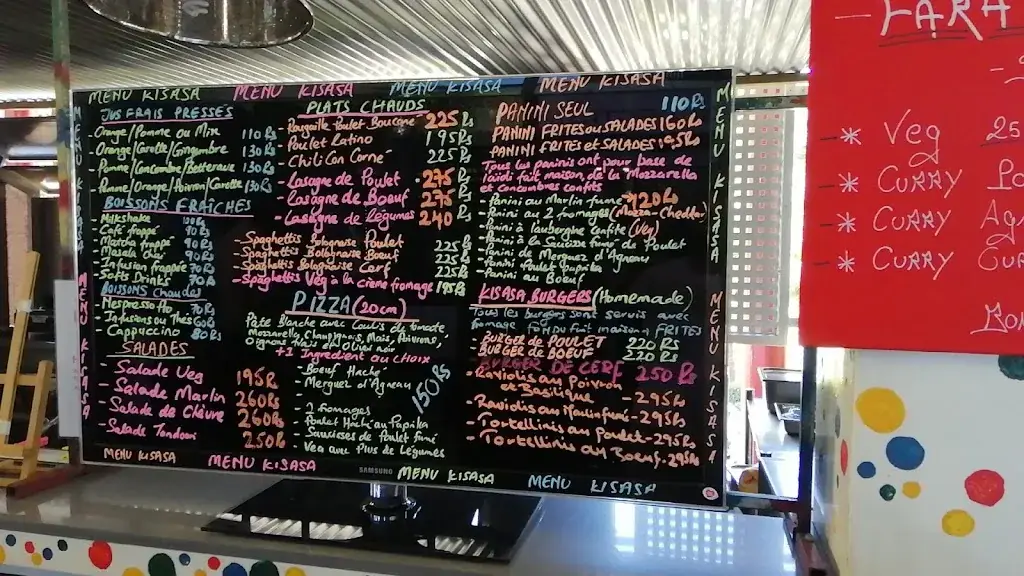 MENU KISASA MENU KISASA MENU KISASA MENU KISASA
JUS FRAIS PRESSES
- Orange/Pomme ou Mix 110 Rs
- Orange/Carotte/Gingembre 130 Rs
- Pomme/Concombre/Betterave 130 Rs
- Pomme/Orange/Poivron/Carotte 130 Rs
BOISSONS FRAICHES
- Milkshake
- Café frappé
- Matcha frappé 90 Rs
- Masala Chai 90 Rs
- Infusion frappée
- Softs Drinks
BOISSONS Chaudes
- Nespresso 70 Rs
- Infusions ou Thés 60 Rs
- Cappuccino 80 Rs
SALADES
- Salade Veg 195 Rs
- Salade Marlin 260 Rs
- Salade de Chèvre 260 Rs
- Salade Tandoori 250 Rs
PLATS CHAUDS
- Rougaille Poulet Boucané 225 Rs
- Poulet Latino 195 Rs
- Chili Con Carné 225 Rs
- Lasagne de Poulet 275 Rs
- Lasagne de Boeuf 275 Rs
- Lasagne de Légumes 240 Rs
- Spaghettis Bolognaise Poulet 225 Rs
- Spaghettis Bolognaise Boeuf 225 Rs
- Spaghettis Bolognaise Cerf 225 Rs
- Spaghettis Veg a la crème fromage 195 Rs
PIZZA (20cm)
Pâte Blanche avec Coulis de tomate
Mozzarella, Champignons, Maïs, Poivrons,
Oignons frais et Olives noir
+1 Ingredient au choix
- Boeuf Haché
- Merguez d'Agneau
150 Rs
- 2 fromages
- Poulet Haché au Paprika
- Saucisses de Poulet fumé
- Veg avec Plus de Légumes
PANINI SEUL 110 Rs
PANINI FRITES ou SALADES 160 Rs
PANINI FRITES et SALADES 195 Rs
Tous les paninis ont pour base de
l'aïoli fait maison, de la Mozzarella
et concombres confits
- Panini au Marlin fumé +20 Rs
- Panini au 2 fromages (Mozza-Cheddar)
- Panini à l'aubergine confite (Veg)
- Panini à la Saucisse fumé de Poulet
- Panini de Merguez d'Agneau
- Panini Poulet Paprika
- Panini au Boeuf
KISASA BURGERS (Homemade)
Tous les burgers sont servis avec
fromage fondu fait maison, FRITES
- BURGER de POULET 220 Rs
- BURGER de BOEUF 220 Rs
BURGER DE CERF 250 Rs
- Raviolis au Poivron
et Basilique - 295 Rs
- Raviolis au Marlin fumé - 295 Rs
- Tortellinis au Poulet - 295 Rs
- Tortellinis au Boeuf - 295 Rs
MENU KISASA MENU KISASA MENU KISASA MENU KISASA
MENU KISASA
MENU KISASA
SAMSUNG
- FARA
* Veg 25
* CURRY Po
* CURRY Ag
* CURRY